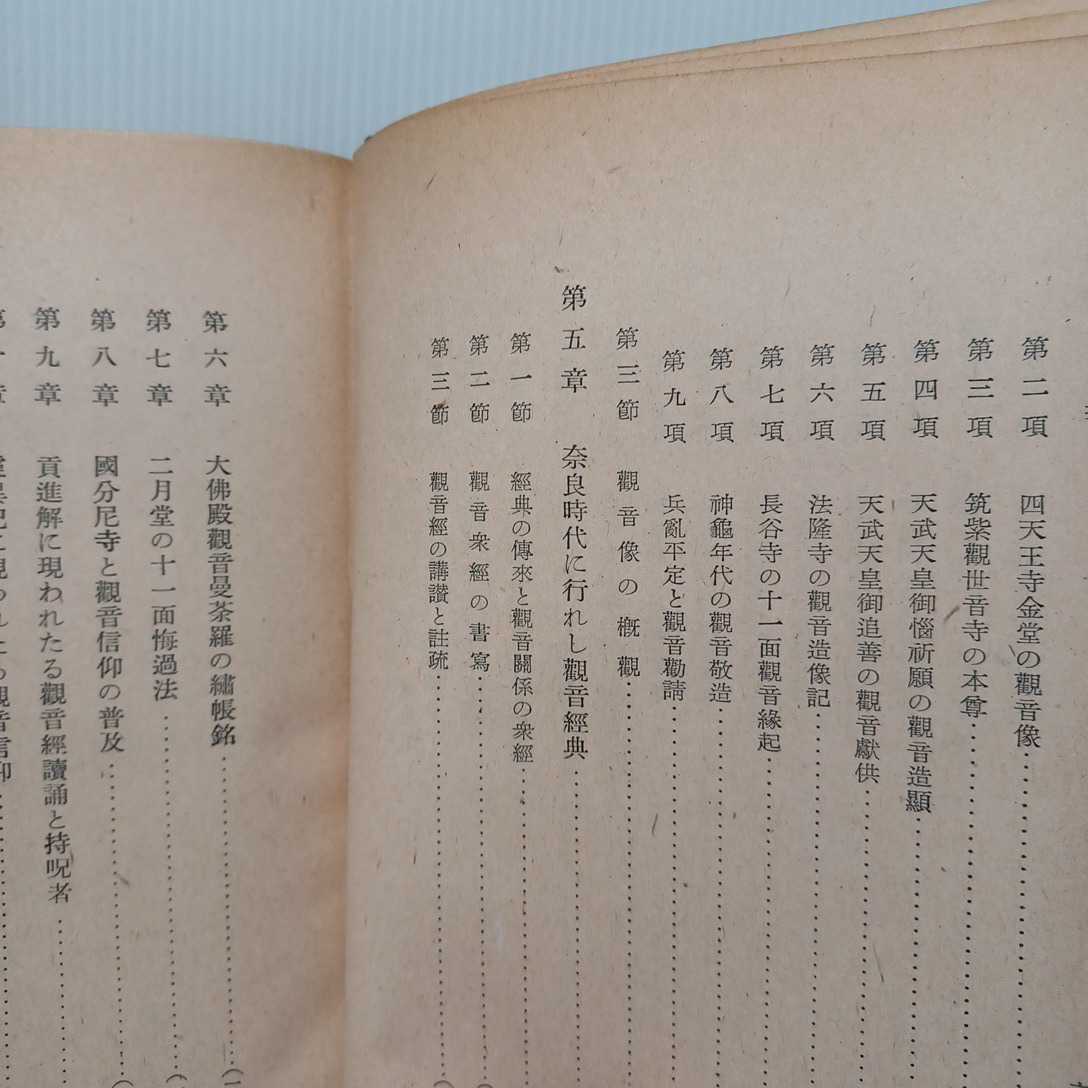 第二項 四天王寺金堂の觀音像
第三項 筑紫觀世音寺の本尊
第四項 天武天皇御惱祈願の觀音造顯
第五項 天武天皇御追善の觀音獻供
第六項 法隆寺の觀音造像記
第七項 長谷寺の十一面觀音緣起
第八項 神龜年代の觀音敬造
第九項 兵亂平定と觀音勸請
第三節 觀音像の槪觀
第五章 奈良時代に行れし觀音經典
第一節 經典の傳來と觀音關係の衆經
第二節 觀音衆經の書寫
第三節 觀音經の講讃と註疏
第六章 大佛殿觀音曼荼羅の繡帳銘
第七章 二月堂の十一面悔過法
第八章 國分尼寺と觀音信仰の普及
第九章 貢進解に現われたる觀音經讀誦と持呪者